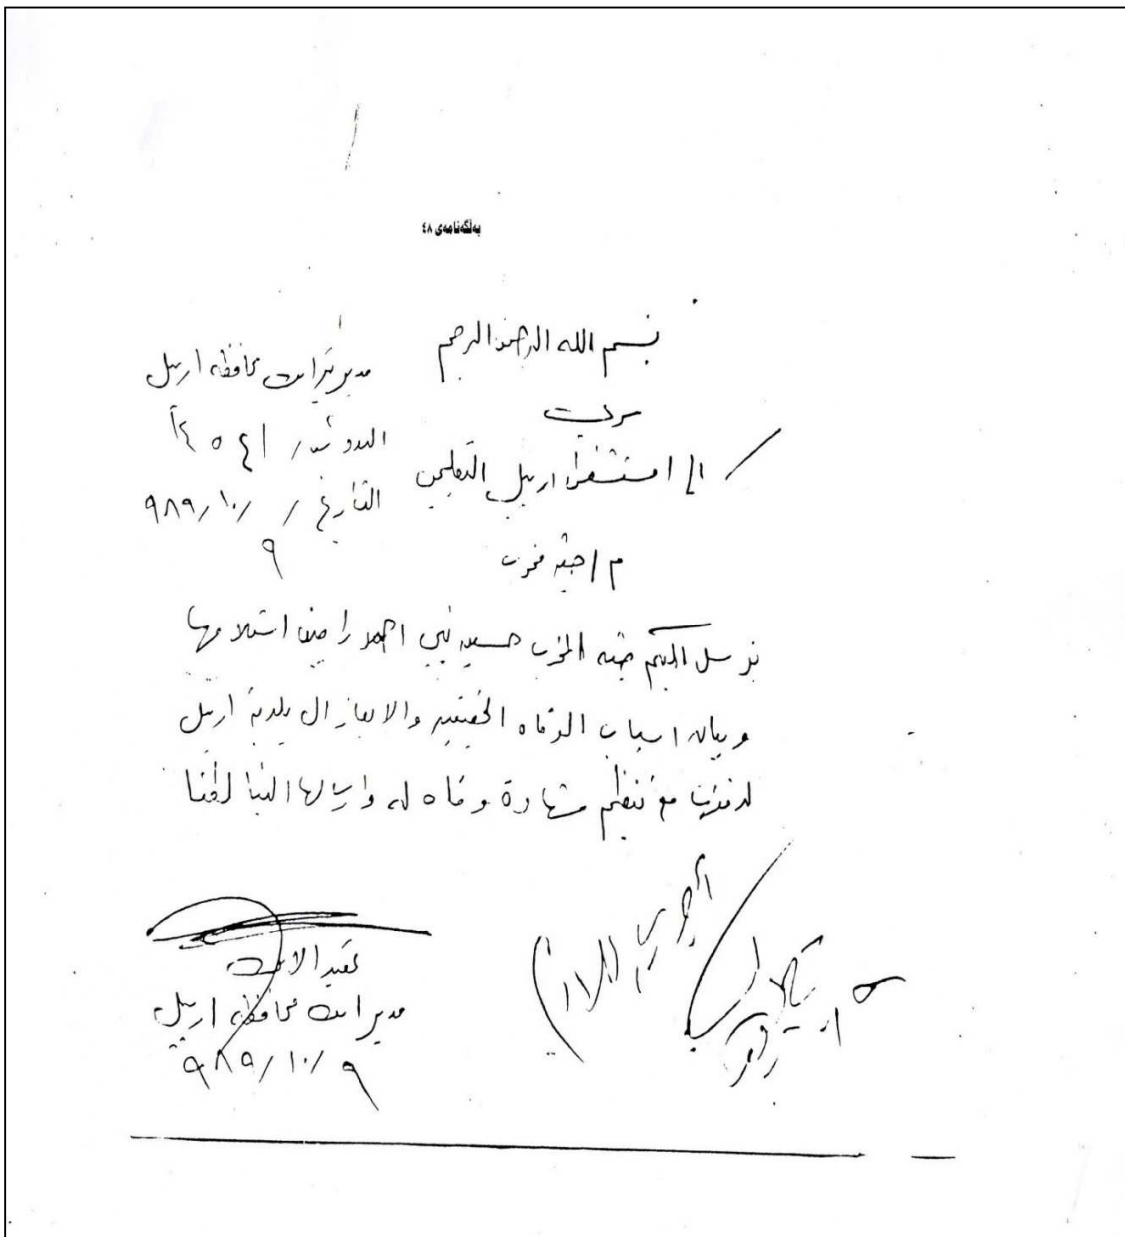 بەڵگەنامەی ٤٨
بسم الله الرحمن الرحيم
مديرية امن محافظة اربيل
سري
العدد ش
الى / مستشفى اربيل التعليمي
التاريخ / ٩ /١٠/ ٩٨٩
م / جثة مخرب
نرسل اليكم جثة المخرب حسين نبي احمد راجين استلامها
وبيان اسباب الوفاة الحقيقية والايعاز الى بلدية اربيل
لدفنها مع تنظيم شهادة وفاة له وارسالها الينا لطفا
عقيد الامن
مدير امن محافظة اربيل
٩ /١٠/ ٩٨٩